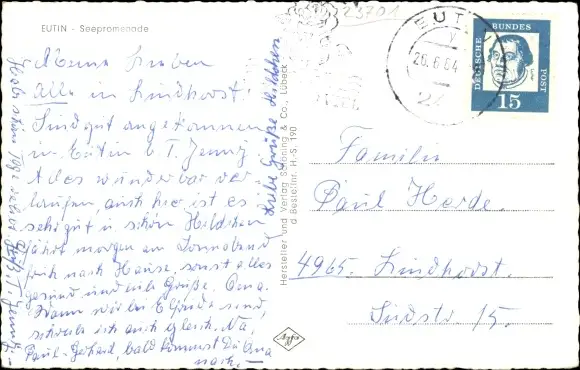 EUTIN - Seepromenade
Meine Lieben
Alle in Lindhorst.
Sind gut angekommen
in Eutin b. T. Jenny
Alles wunderbar ver
laufen, auch hier ist es
sehr gut, u. schön Heldchen
fährt morgen am Sonnabend
früh nach Hause, sonst alles
gesund und viele Grüße. Oma.
Wann wir bei Elfriede sind,
schreibe ich auch gleich. Na,
Paul-Gerhard, bald kommst Du Oma
nach.
Liebe Grüße Heldchen
Hersteller und Verlag Schöning & Co., Lübeck
Bestellnr. H.-S. 190
Agfa
23701
EUTIN
26.6.64
24
DEUTSCHE
BUNDES
POST
15
Familie
Paul Harde.
4965. Lindhorst.
Südstr. 15.